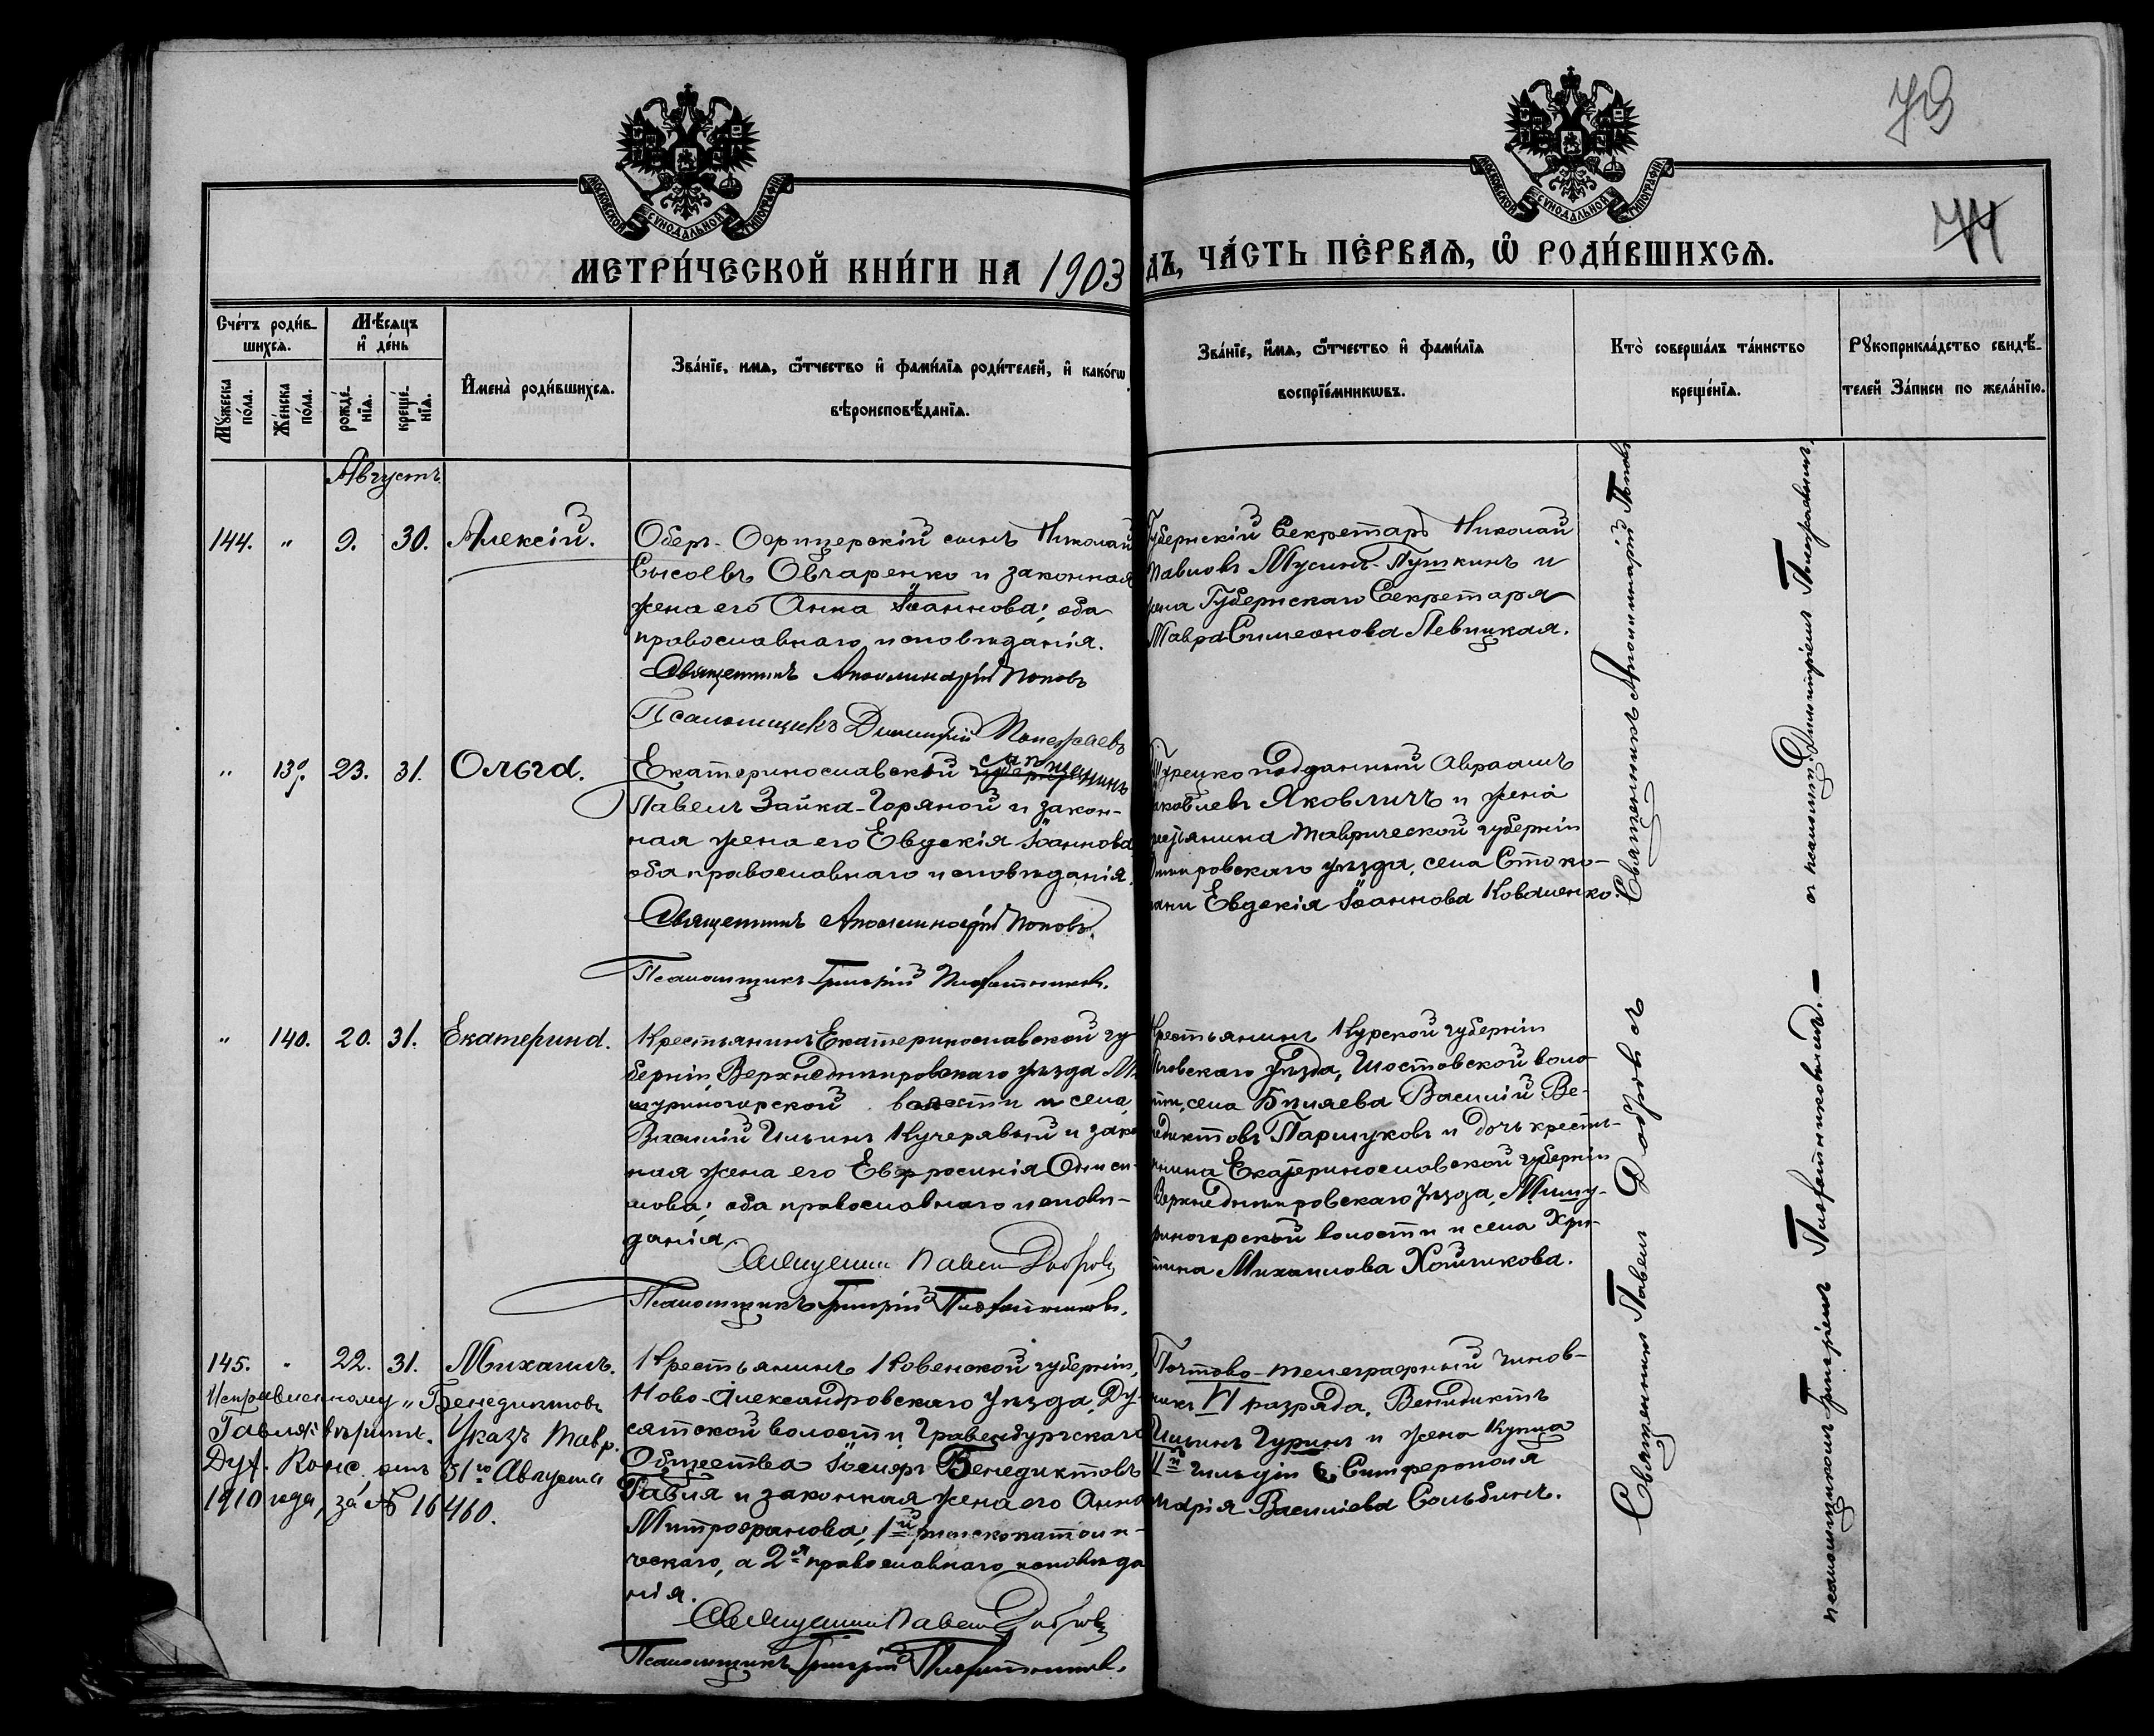 79
74
МОСКОВСКОЙ СѴНОДАЛЬНОЙ ТИПОГРАФІИ
МОСКОВСКОЙ СѴНОДАЛЬНОЙ ТИПОГРАФІИ
МЕТРИ́ЧЕСКОЙ КНИ́ГИ НА 1903
ДЪ, ЧА́СТЬ ПЕ́РВАѦ, Ѿ РОДИ́ВШИХСѦ.
Сче́тъ роди́в-
шихсѧ.
Мꙋжеска по́ла.
Же́нска по́ла.
Мѣ́сѧцъ и҆ де́нь
рожде́-нїѧ.
креще́-нїѧ.
И҆мена̀ роди́вшихсѧ.
Зва́нїе, имѧ, ѻ҆́тчество и҆ фами́лїѧ роди́телей, и҆ како́гѡ
вѣроисповѣ́данїѧ.
Зва́нїе, и҆́мѧ, ѻ҆́тчество и҆ фами́лїѧ
воспрїе́мникѡвъ.
Кто̀ соверша́лъ та́инство
креще́нїѧ.
Рꙋкоприкла́дство свидѣ́-
телей За́писи по жела́нїю.
Августъ.
144. " 9. 30. Алексій.
Оберъ-Офицерскій сынъ Николай
Сысоевъ Овчаренко и законная
жена его Анна Іоаннова; оба
православнаго исповѣданія.
Священникъ Аполлинарій Поповъ
Псаломщикъ Димитрій
Губернскій Секретарь Николай
Павловъ Мусинъ-Пушкинъ и
жена Губернскаго Секретаря
Мавра Симеонова Левицкая.
" 139. 23. 31. Ольга.
Екатеринославскій
Павелъ Зайка-Горяной и закон-
ная жена его Евдокія Іоаннова
оба православнаго исповѣданія.
Священникъ Аполлинарій Поповъ.
Псаломщикъ Григорій
Турецко подданный Авраамъ
Яковлевъ Яковличъ и жена
крестьянина Таврической губерніи
Днѣпровскаго уѣзда, села Стоко-
пани Евдокія Іоаннова Коваленко.
" 140. 20. 31. Екатерина.
Крестьянинъ Екатеринославской гу
берніи, Верхнеднѣпровскаго уѣзда Ми
шуриногорской волости и села
Василій Ильинъ Кучерявый и зако
ная жена его Евфросинія Ониси-
мова; оба православнаго исповѣ-
данія.
Священникъ Павелъ Добровъ
Псаломщикъ Григорій
Крестьянинъ Курской губерніи
Льговскаго уѣзда, воло-
сти, села Василій Ве-
недиктовъ Паршуковъ и дочь кресть-
янина Екатеринославской губерніи
Верхнеднѣпровскаго уѣзда, Мишу-
риногорской волости и села Хри-
стина Михаилова
145. " 22. 31. Михаилъ.
Исправленному " Бенедиктовъ
Гавия вѣрить. Указъ Тавр.
Дух. Конс. отъ 31го Августа
1910 года, за № 16460.
Крестьянинъ Ковенской губерніи,
Ново-Александровскаго уѣзда, Ду-
сятской волости, Гравендургскаго
Общества Іосифъ Бенедиктовъ
Гавия и законная жена его Анна
Митрофанова, 1й римскокатоли-
ческаго, а 2я православнаго исповѣда
нія.
Священникъ Павелъ Добровъ
Псаломщикъ Григорій
Почтово-телеграфный чинов-
никъ VI разряда, Венидиктъ
Ильинъ Гуринъ и жена купца
II й гильдіи г. Симферополя
Марія Василіева Сольбинъ.
Священникъ Аполлинарій Поповъ
съ псаломщ. Димитріемъ
Священникъ Павелъ Добровъ съ
псаломщикомъ Григоріемъ